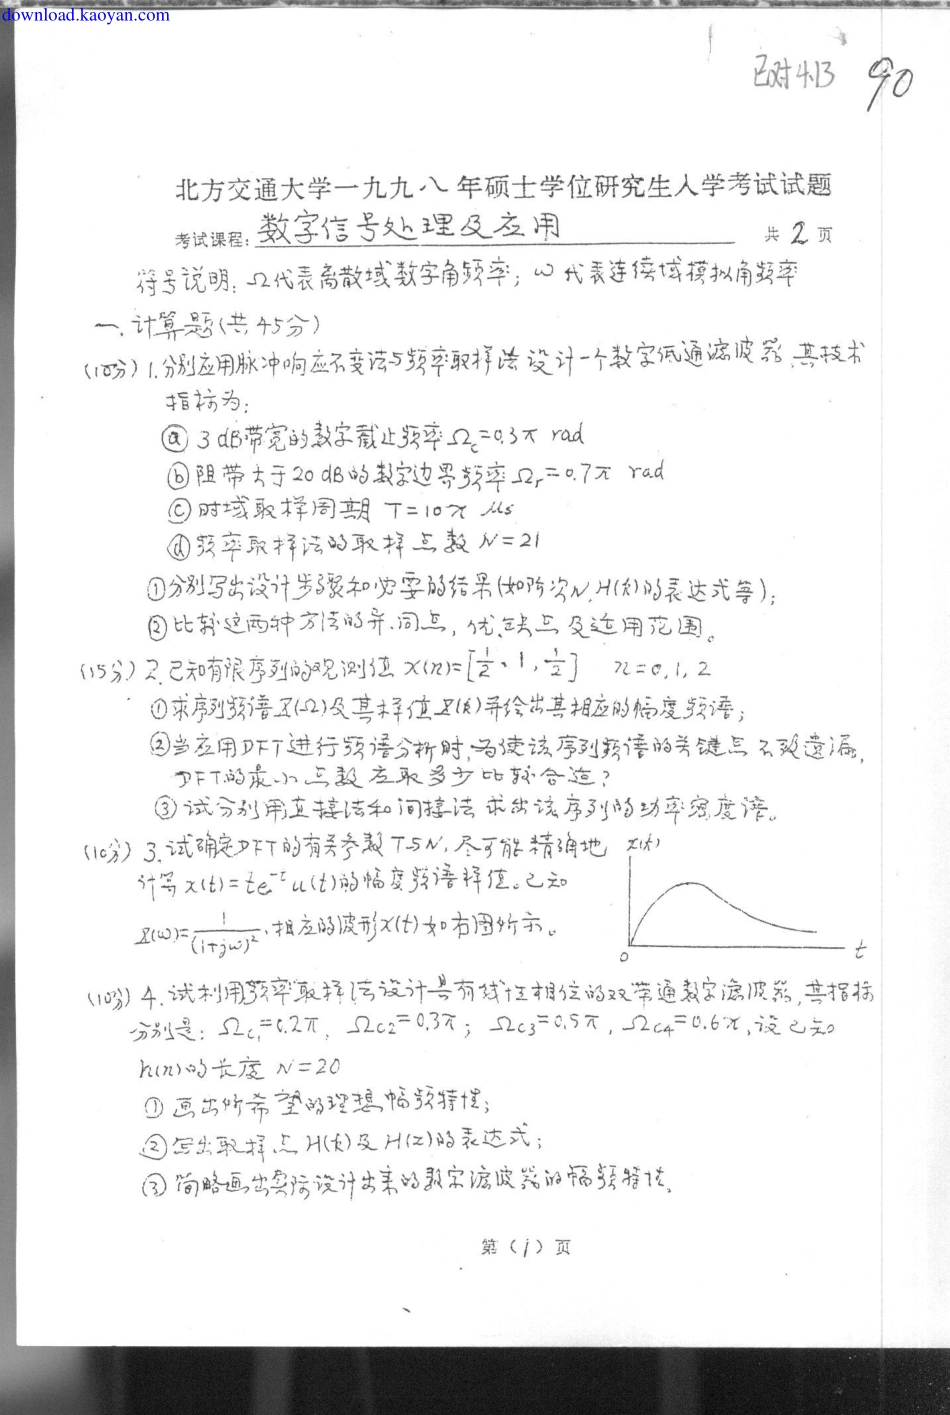 download.kaoyan.com
已对 4.13 90
北方交通大学一九九八年硕士学位研究生入学考试试题
考试课程: 数字信号处理及应用 共 2 页
符号说明: Ω代表离散域数字角频率; ω代表连续域模拟角频率
一、计算题(共45分)
(10分) 1.分别应用脉冲响应不变法与频率取样法设计一个数字低通滤波器,其技术
指标为:
ⓐ 3dB带宽的数字截止频率Ωc=0.3π rad
ⓑ 阻带大于20dB的数字边界频率Ωr=0.7π rad
ⓒ 时域取样周期 T=10π μs
ⓓ 频率取样法的取样点数 N=21
①分别写出设计步骤和必要的结果(如阶次N,H(k)的表达式等);
②比较这两种方法的异、同点,优、缺点及适用范围。
(15分) 2.已知有限序列的观测值 x(n)=[1/2、1,1/2] n=0,1,2
①求序列频谱X(Ω)及其样值X(k)并绘出其相应的幅度频谱;
②当应用DFT进行频谱分析时,为使该序列频谱的关键点不致遗漏,
DFT的最小点数应取多少比较合适?
③试分别用直接法和间接法求出该序列的功率密度谱。
(10分) 3.试确定DFT的有关参数T与N,尽可能精确地
计算x(t)=te⁻ᵗu(t)的幅度频谱样值。已知
X(ω)=1/(1+jω)²,相应的波形x(t)如右图所示。
x(t)
0
t
(10分) 4.试利用频率取样法设计具有线性相位的双带通数字滤波器,其指标
分别是: Ωc₁=0.2π, Ωc2=0.3π; Ωc3=0.5π, Ωc4=0.6π,设已知
h(n)的长度 N=20
①画出所希望的理想幅频特性;
②写出取样点H(k)及H(z)的表达式;
③简略画出实际设计出来的数字滤波器的幅频特性.
第(1)页